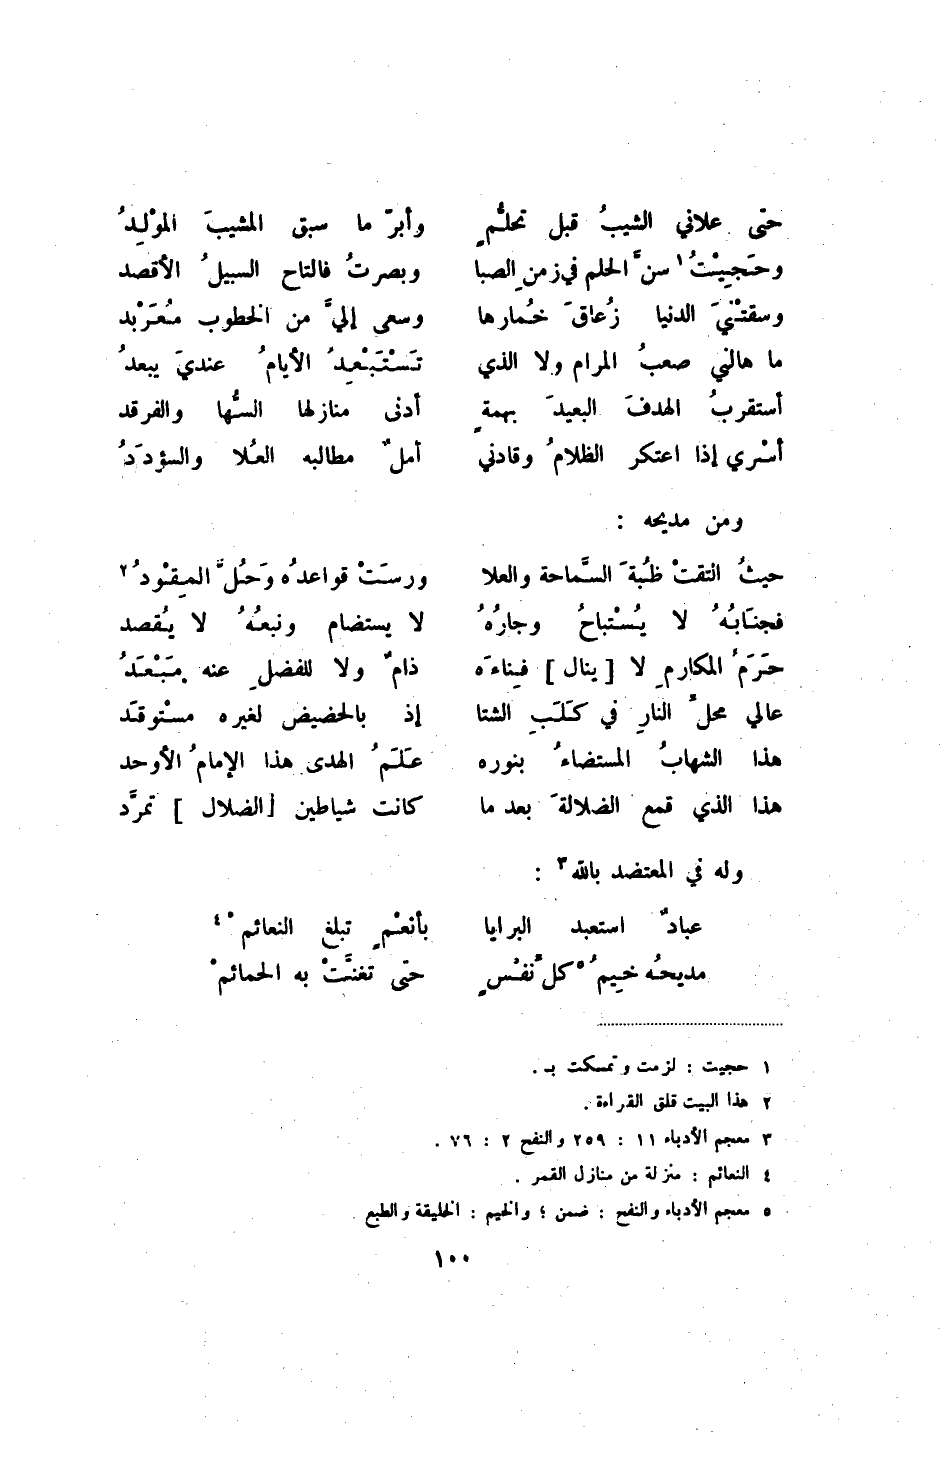 حتّى علاني الشيبُ قبل تحلُّمٍ وأبرّ ما سبق المشيبَ المَوْلِدُ
وحَجِيْتُ١ سنَّ الحلم في زمنِ الصبا وبصرتُ فالتاح السبيلُ الأقصد
وسقتْنيَ الدنيا زُعاقَ خُمارها وسعى إليَّ من الخطوب مُعَرْبد
ما هالني صعبُ المرام ولا الذي تَسْتَبْعِدُ الأيامُ عنديَ يبعدُ
أستقربُ الهدفَ البعيدَ بهمةٍ أدنى منازلها السُّها والفرقد
أسْري إذا اعتكر الظلامُ وقادني أملٌ مطالبه العُلا والسؤددُ
ومن مديحه :
حيثُ التقتْ ظُبَةَ السَّماحة والعلا ورستْ قواعدُه وحُلَّ المِقْودُ٢
فجنَابُهُ لا يُسْتباحُ وجارُهُ لا يستضام ونبعُهُ لا يُقصد
حَرَمُ المكارمِ لا [ ينال ] فِناءَه ذامٌ ولا للفضلِ عنه مَبْعَدُ
عالي محلَّ النارِ في كَلَبِ الشتا إذ بالحضيض لغيره مسْتوقَد
هذا الشهابُ المستضاءُ بنوره عَلَمُ الهدى هذا الإمامُ الأوحد
هذا الذي قمع الضلالةَ بعد ما كانت شياطين [ الضلال ] تمرَّد
وله في المعتضد بالله٣ :
عبادٌ استعبد البرايا بأنعْمٍ تبلغ النعائمْ٤
مديحُه خِيمُ٥ كلّ نفْسٍ حتّى تغنَّتْ به الحمائمْ
١ حجيت : لزمت وتمسكت بـ .
٢ هذا البيت قلق القراءة .
٣ معجم الأدباء ١١ : ٢٥٩ والنفح ٢ : ٧٦ .
٤ النعائم : منزلة من منازل القمر .
٥ معجم الأدباء والنفح : ضمن ؛ والخيم : الخليقة والطبع .
١٠٠